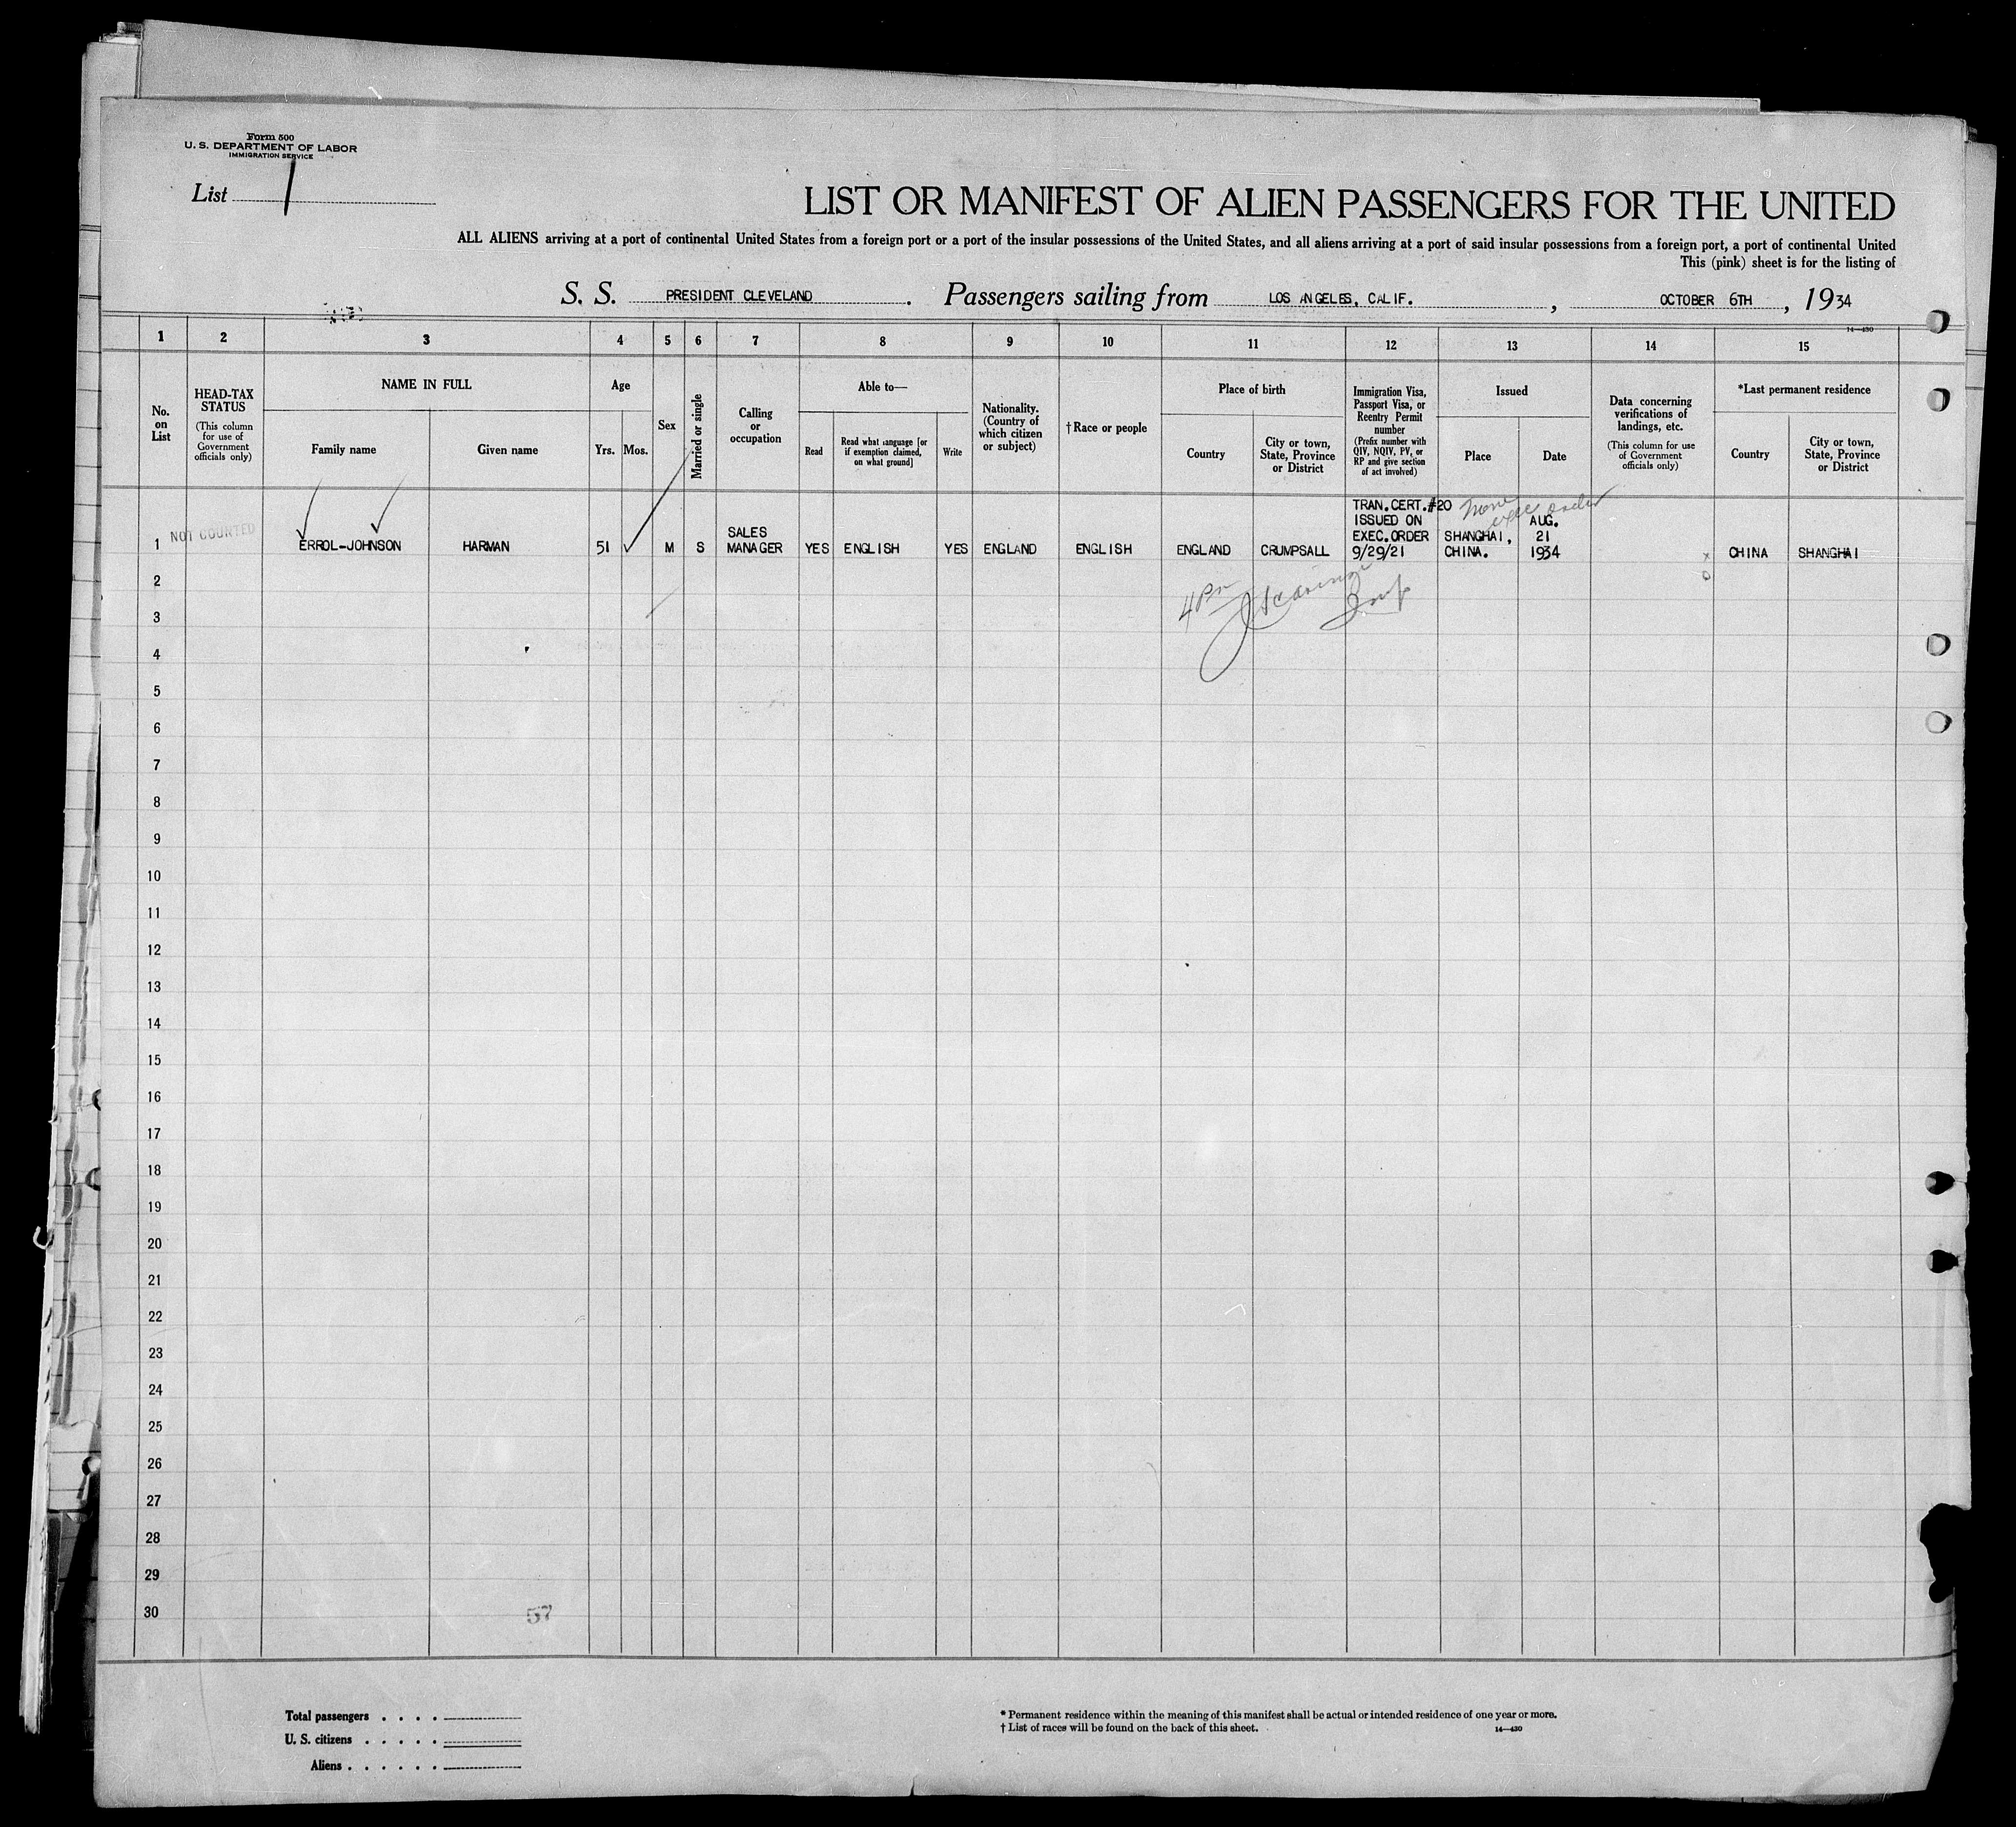 Form 500
U. S. DEPARTMENT OF LABOR
IMMIGRATION SERVICE
List 1
LIST OR MANIFEST OF ALIEN PASSENGERS FOR THE UNITED
ALL ALIENS arriving at a port of continental United States from a foreign port or a port of the insular possessions of the United States, and all aliens arriving at a port of said insular possessions from a foreign port, a port of continental United
This (pink) sheet is for the listing of
S. S. PRESIDENT CLEVELAND. Passengers sailing from LOS ANGELES, CALIF., OCTOBER 6TH, 1934
14—430
1 2 3 4 5 6 7 8 9 10 11 12 13 14 15
No. on List
HEAD-TAX STATUS
(This column for use of Government officials only)
NAME IN FULL
Family name
Given name
Age
Yrs.
Mos.
Sex
Married or single
Calling or occupation
Able to—
Read
Read what language [or if exemption claimed, on what ground]
Write
Nationality. (Country of which citizen or subject)
†Race or people
Place of birth
Country
City or town, State, Province or District
Immigration Visa, Passport Visa, or Reentry Permit number
(Prefix number with QIV, NQIV, PV, or RP and give section of act involved)
Issued
Place
Date
Data concerning verifications of landings, etc.
(This column for use of Government officials only)
*Last permanent residence
Country
City or town, State, Province or District
1 NOT COUNTED ERROL-JOHNSON HARMAN 51 M S SALES MANAGER YES ENGLISH YES ENGLAND ENGLISH ENGLAND CRUMPSALL TRAN.CERT.#20 ISSUED ON EXEC.ORDER 9/29/21 SHANGHAI, CHINA. AUG. 21 1934 CHINA SHANGHAI
None
exec order
x
o
2
4 Pm
3
4
5
6
7
8
9
10
11
12
13
14
15
16
17
18
19
20
21
22
23
24
25
26
27
28
29
30
57
Total passengers . . . .
U. S. citizens . . . . .
Aliens . . . . . .
* Permanent residence within the meaning of this manifest shall be actual or intended residence of one year or more.
† List of races will be found on the back of this sheet.
14—430